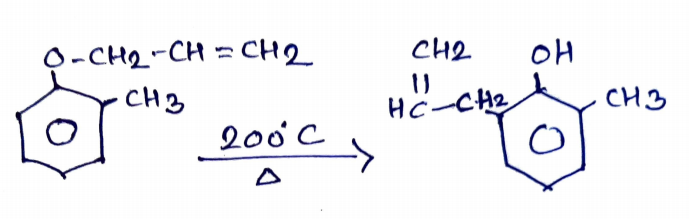 O-CH2-CH=CH2
CH3
200°C
Δ
CH2 OH
||
HC-CH2 CH3